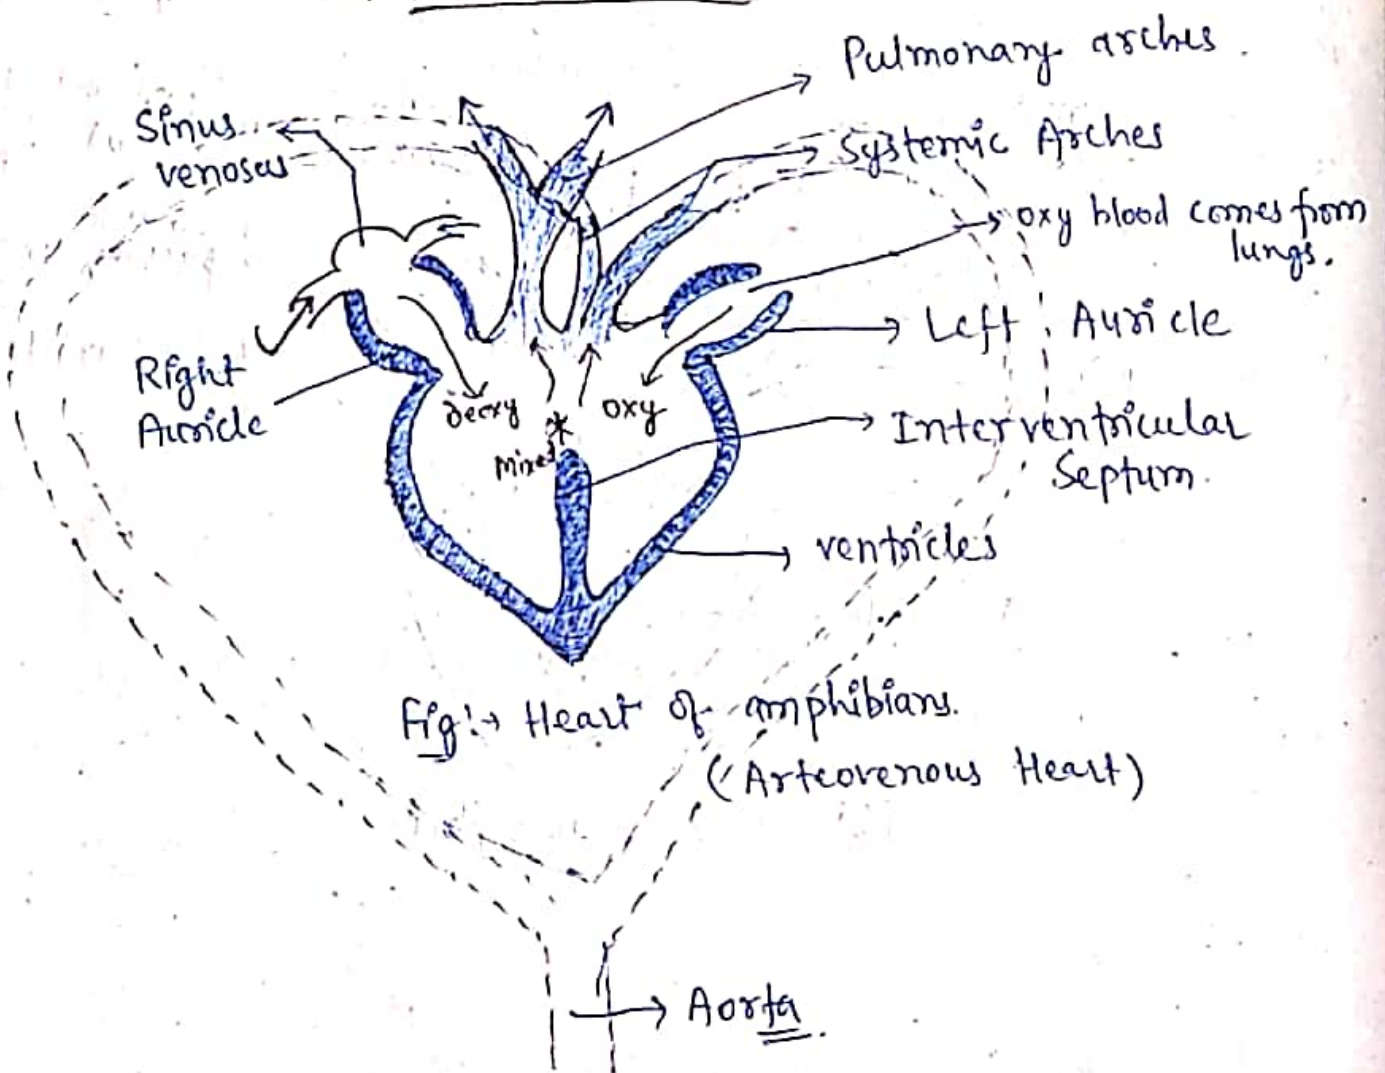 Pulmonary arches.
Sinus
venosus
Systemic Arches
oxy blood comes from
lungs.
Left Auricle
Right
Auricle
Deoxy
oxy
*
Mixed
Interventricular
Septum.
ventricles
Fig:→ Heart of amphibians.
(Arteovenous Heart)
Aorta.